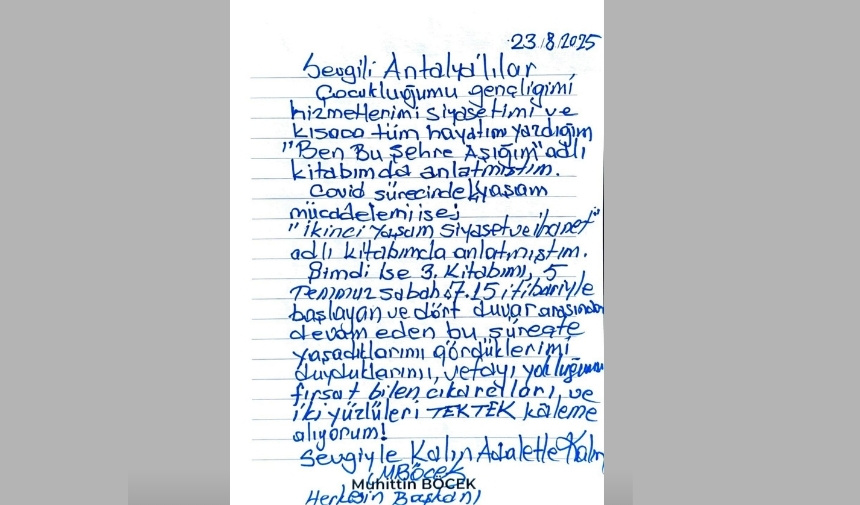 23/8/2025
Sevgili Antalya'lılar
Çocukluğumu gençligimi
hizmetlerimi siyasetimi ve
kısaca tüm hayatım yazdığım
"Ben Bu Şehre Aşığım" adlı
kitabımda anlatmıştım.
Covid sürecindeki yaşam
mücadelemi ise;
"ikinci Yaşam Siyaset ve ihanet"
adlı kitabımda anlatmıştım.
Şimdi ise 3. Kitabımı, 5
Temmuz sabah 17.15 itibariyle
başlayan ve dört duvar arasından
devam eden bu süreçte
yaşadıklarımı gördüklerimi
duyduklarımı, vefayı yokluğumu
fırsat bilen çıkarcıları, ve
iki yüzlüleri TEK TEK kaleme
alıyorum!
Sevgiyle Kalın Adaletle Kalın
MBÖCEK
Muhittin BÖCEK
Herkesin Başkanı